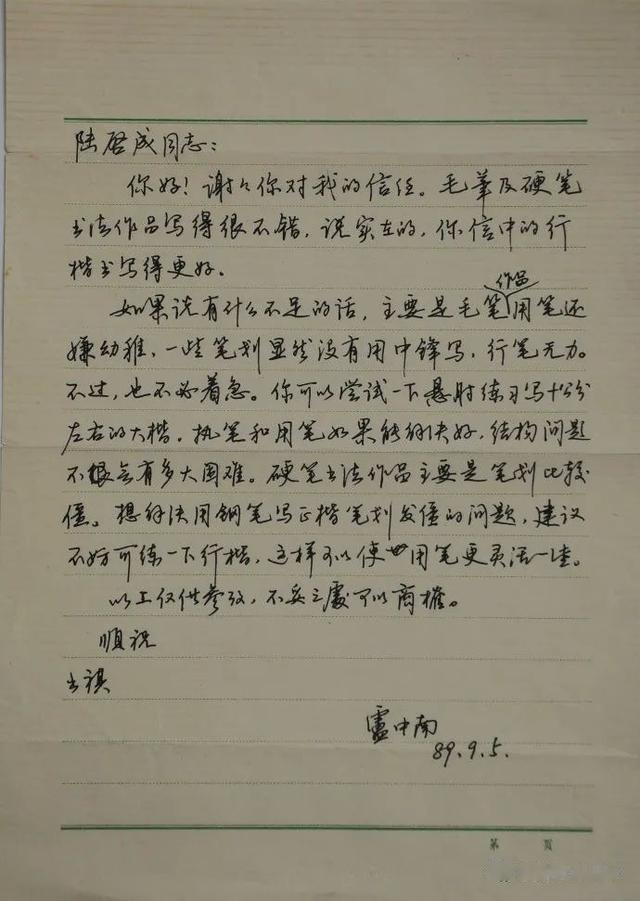 陆啓成同志：
你好！谢谢你对我的信任。毛笔及硬笔
书法作品写得很不错，说实在的，你信中的行
楷书写得更好。
作品
如果说有什么不足的话，主要是毛笔用笔还
嫌幼稚，一些笔划显然没有用中锋写，行笔无力。
不过，也不必着急。你可以尝试一下悬肘练习写十公分
左右的大楷。执笔和用笔如果能解决好，结构问题
不会有多大困难。硬笔书法作品主要是笔划比较
僵。想解决用钢笔写正楷笔划发僵的问题，建议
不妨可练一下行楷，这样可以使用笔更灵活一些。
以上仅供参考，不妥之处可以商榷。
顺祝
书祺
卢中南
89.9.5.
第 页